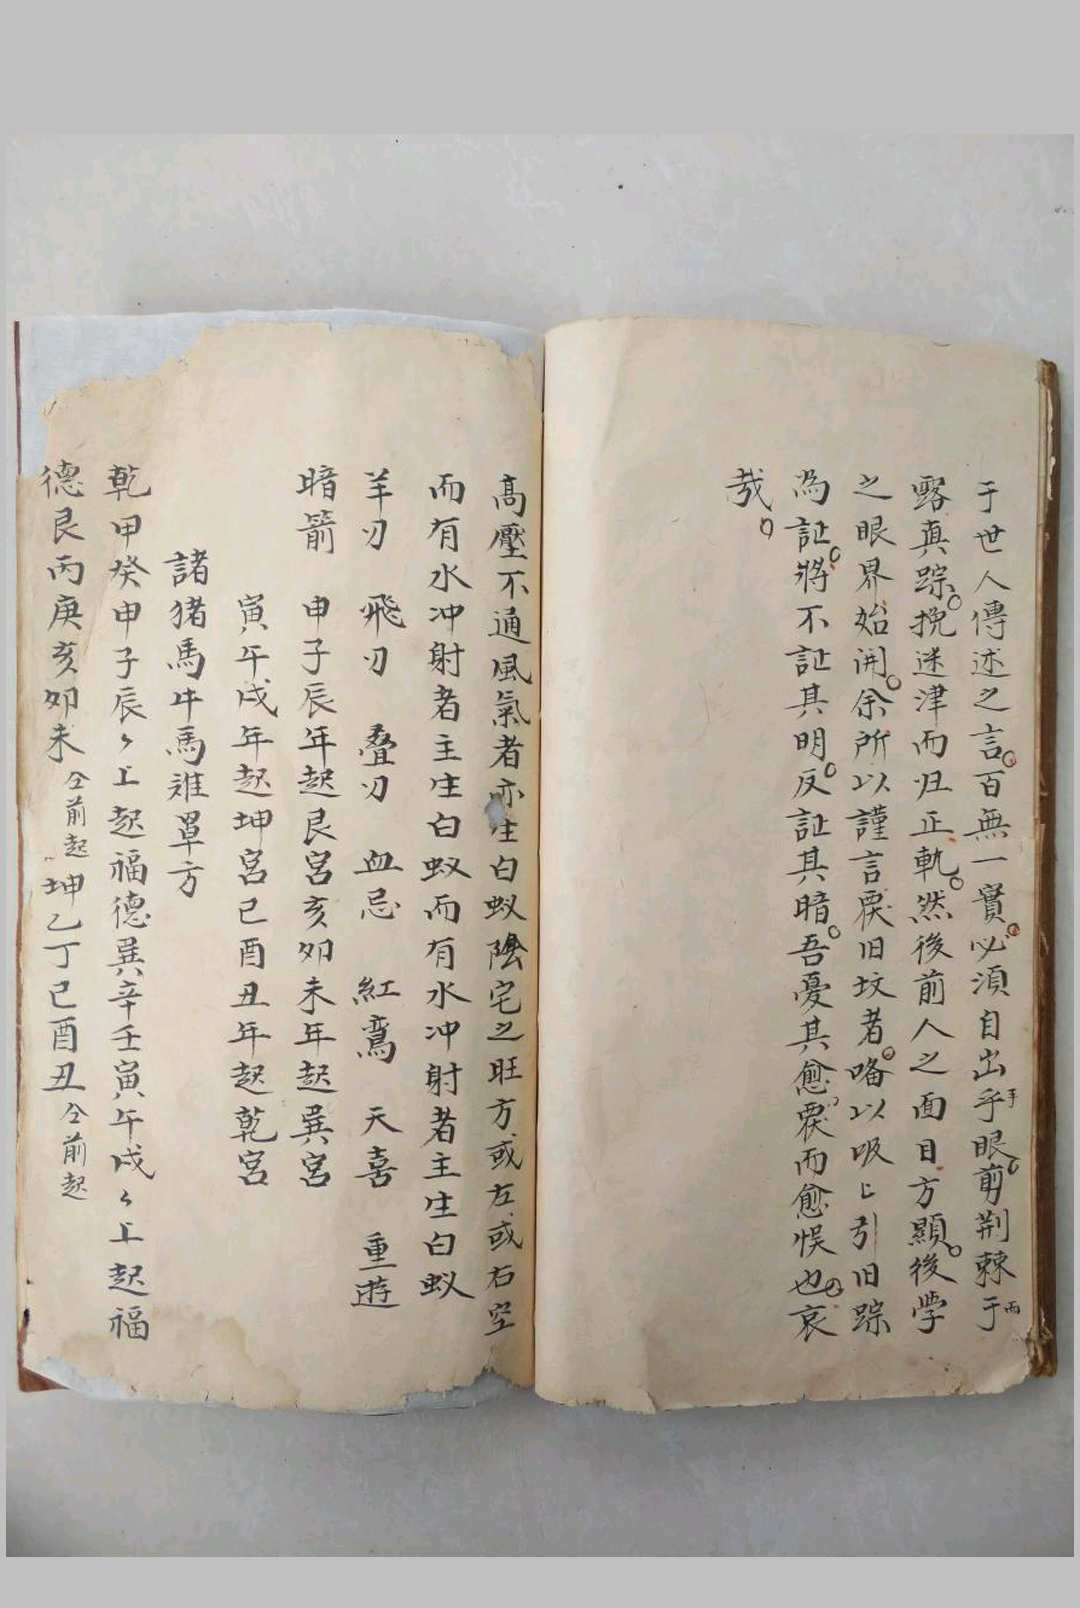 于世人傳述之言。百無一實。必須自出乎手眼。剪荆棘于而
露真踪。挽迷津而归正軌。然後前人之面目方顯。後學
之眼界始開。余所以謹言覆旧坟者。略以吸上引旧踪
為証。將不証其明。反証其暗。吾憂其愈覆而愈悮也。哀
哉。
高壓不通風氣者亦生白蚁陰宅之旺方或左或右空
而有水冲射者主生白蚁而有水冲射者主生白蚁
羊刃 飛刃 叠刃 血忌 紅鸞 天喜 重遊
暗箭 申子辰年起艮宮亥卯未年起巽宮
寅午戌年起坤宮巳酉丑年起乾宮
諸猪馬牛馬進單方
乾甲癸申子辰々上起福德巽辛壬寅午戌々上起福
德艮丙庚亥卯未仝前起坤乙丁巳酉丑仝前起